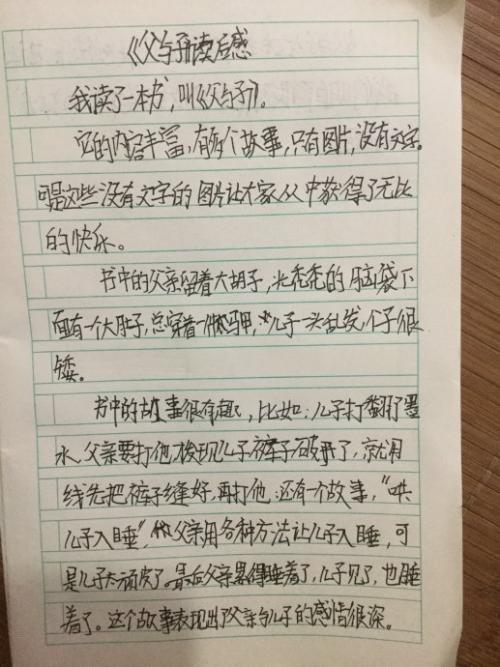 《父与子》读后感
我读了一本书,叫《父与子》。
它的内容丰富,有多个故事,只有图片,没有文字。
可是这些没有文字的图片让大家从中获得了无比
的快乐。
书中的父亲留着大胡子,光秃秃的脑袋下
面有一个大肚子,总穿着一件马甲,儿子一头乱发,个子很
矮。
书中的故事很有趣,比如:儿子打翻了墨
水,父亲要打他,发现儿子裤子破开了,就用
线先把裤子缝好,再打他;还有一个故事,“哄
儿子入睡”,父亲用各种方法让儿子入睡,可
是儿子太顽皮了。最后父亲累得睡着了,儿子见了,也睡
着了。这个故事表现出了父亲与儿子的感情很深。